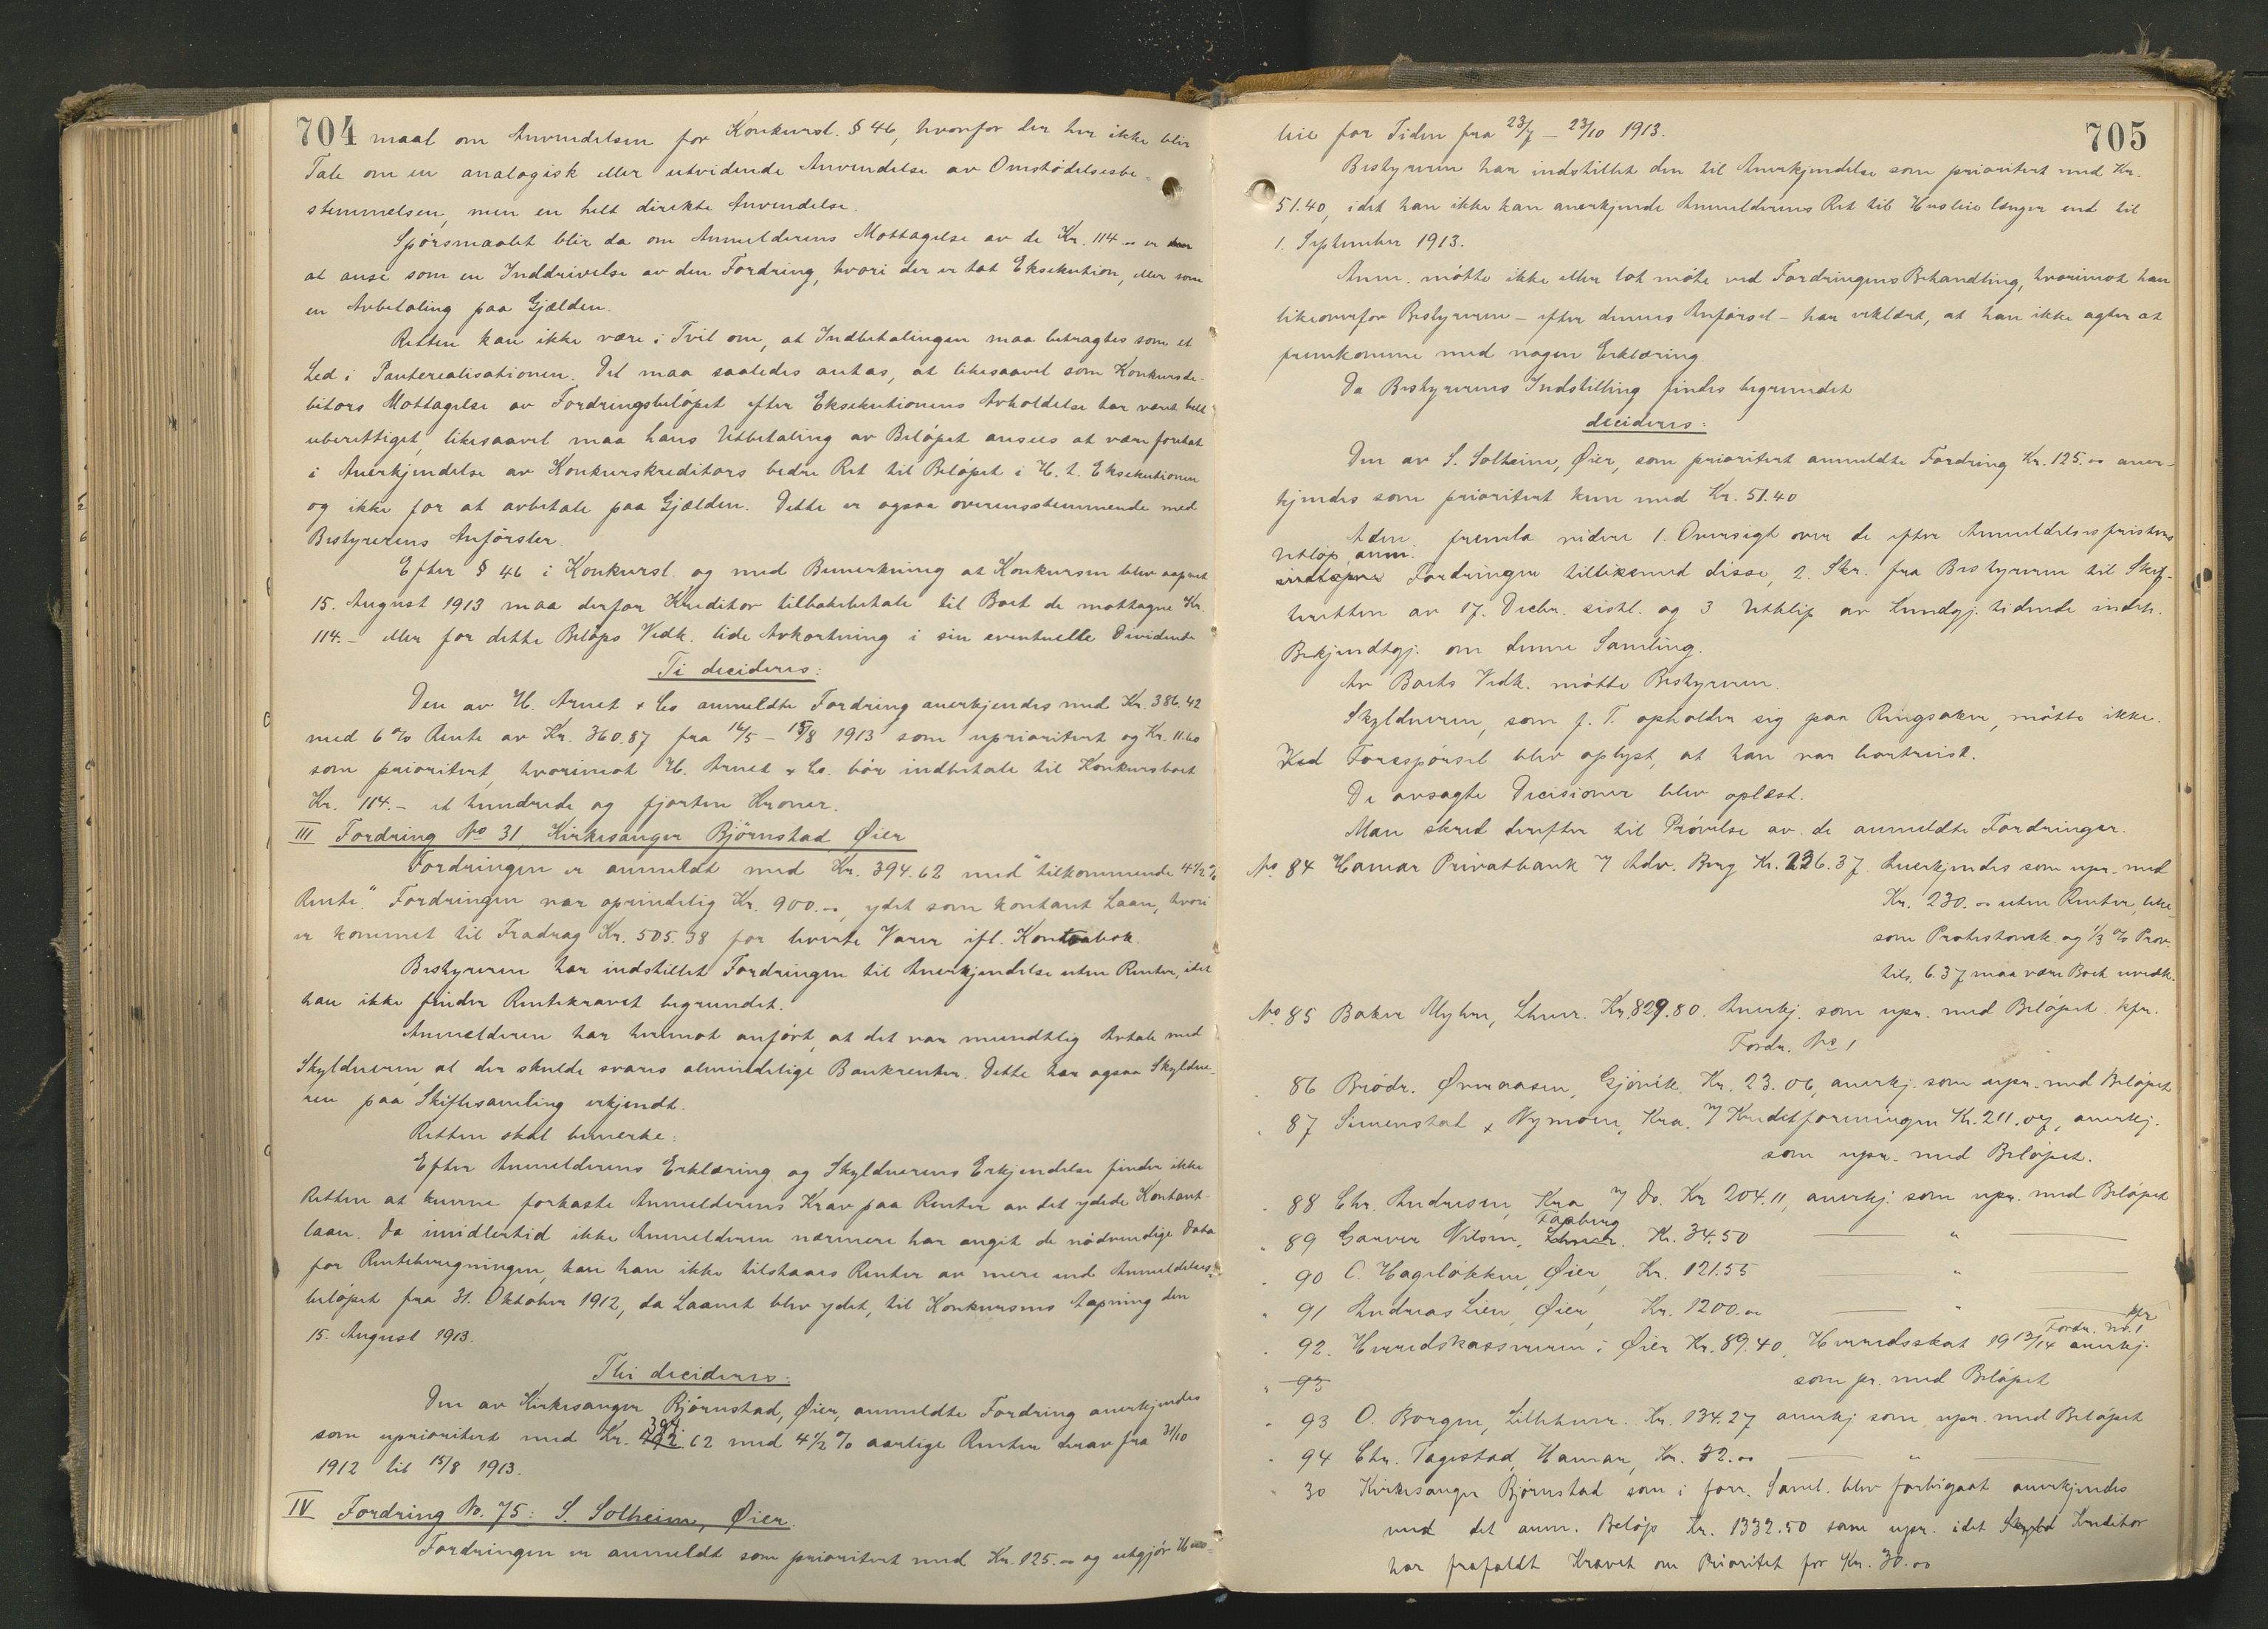 704 maal om Anvendelsen for Konkursl. § 46, hvorfor der her ikke blir
Tale om en analogisk eller utvidende Anvendelse av Omstödelsesbe=
stemmelsen, men en helt direkte Anvendelse.
Spörsmaalet blir da om Anmelderens Mottagelse av de Kr. 114.- er
at anse som en Inddrivelse av den Fordring, hvori der er tat Eksekution, eller som
en Avbetaling paa Gjælden.
Retten kan ikke være i Tvil om, at Indbetalingen maa betragtes som et
Led i Panterealisationen. Det maa saaledes antas, at likesaavel som Konkursde-
bitors Mottagelse av Fordringsbelöpet efter Eksekutionens Avholdelse har været helt
uberettiget, likesaavel maa hans Utbetaling av Belöpet ansees at være foretat
i Anerkjendelse av Konkurskreditors bedre Ret til Belöpet i H. t. Eksekutionen
og ikke for at avbetale paa Gjælden. Dette er ogsaa overensstemmende med
Bestyrerens Anförsler.
Efter § 46 i Konkursl. og med Bemerkning at Konkursen blev aapnet
15. August 1913 maa derfor Kreditor tilbakebetale til Boet de mottagne Kr.
114.- eller for dette Belöps Vedk. lide Avkortning i sin eventuelle Dividende
Ti decideres:
Den av H. Arnet & Co anmeldte Fordring anerkjendes med Kr. 386.42
med 6 % Rente av Kr. 360.87 fra 16/5 - 15/8 1913 som uprioritert og Kr. 11.60
som prioritert, hvorimot H. Arnet & Co. bör indbetale til Konkursboet
Kr. 114.- et hundrede og fjorten Kroner.
III Fordring No 31, Kirkesanger Björnstad Øier
Fordringen er anmeldt med Kr. 394.62 med "tilkommende 4 1/2 %
Rente". Fordringen var oprindelig Kr. 900.-, ydet som kontant Laan, hvori
er kommet til Fradrag Kr. 505.38 for leverte Varer ifl. Kontrabok.
Bestyreren har indstillet Fordringen til Anerkjendelse uten Renter, idet
han ikke finder Rentekravet begrundet.
Anmelderen har herimot anfört, at det var mundtlig Avtale med
Skyldneren, at der skulde svares almindelige Bankrenter. Dette har ogsaa Skyldne-
ren paa Skiftesamling erkjendt.
Retten skal bemerke:
Efter Anmelderens Erklæring og Skyldnerens Erkjendelse finder ikke
Retten at kunne forkaste Anmelderens Krav paa Renter av det ydede Kontant-
laan. Da imidlertid ikke Anmelderen nærmere har angit de nödvendige Data
for Renteberegningen, kan han ikke tilstaaes Renter av mere end Anmeldelses-
belöpet fra 31. Oktober 1912, da Laanet blev ydet, til Konkursens Aapning den
15. August 1913.
Thi decideres:
Den av Kirkesanger Björnstad, Øier, anmeldte Fordring anerkjendes
som uprioritert med Kr. 394.62 med 4 1/2 % aarlige Renter derav fra 31/10
1912 til 15/8 1913.
IV Fordring No. 75: S. Solheim, Øier.
Fordringen er anmeldt som prioritert med Kr. 125.- og utgjör Hus=
705
leie for Tiden fra 23/7 - 23/10 1913.
Bestyreren har indstillet den til Anerkjendelse som prioritert med Kr.
51.40, idet han ikke kan anerkjende Anmelderens Ret til Husleie længer end til
1. September 1913.
Anm. mötte ikke eller lot möte ved Fordringens Behandling, hvorimot han
likeoverfor Bestyreren - efter dennes Anförsel - har erklært, at han ikke agter at
fremkomme med nogen Erklæring.
Da Bestyrerens Indstilling findes begrundet
decideres:
Den av S. Solheim, Øier, som prioritert anmeldte Fordring Kr. 125.- aner-
kjendes som prioritert kun med Kr. 51.40
Adm. fremla videre 1. Oversigt over de efter Anmeldelsesfristens
Utlöp anm. Fordringer tillikemed disse, 2. Skr. fra Bestyreren til Skif-
teretten av 17. Decbr. sistl. og 3 Utklip av Kundgj. tidende indeh.
Bekjendtgj. om denne Samling.
Av Boets Vedk. mötte Bestyreren.
Skyldneren, som f. T. opholder sig paa Ringsaker, mötte ikke.
Ved Forespörsel blev oplyst, at han var bortreist.
De avsagte Decisioner blev oplæst.
Man skred derefter til Prövelse av de anmeldte Fordringer.
No. 84 Hamar Privatbank v/ Adv. Berg Kr. 236.37 Anerkjendes som upr. med
Kr. 230.- uten Renter, like-
som Protestomk. og 1/3 % Prov.
tils. 6.37 maa være Boet uvedk.
No. 85 Baker Myhre, Lhmr. Kr. 829.80. Anerkj. som upr. med Belöpet. kfr.
Fordr. No 1
" 86 Brödr. Øveraasen, Gjövik, Kr. 23.06, anerkj. som upr. med Belöpet
" 87 Simenstad & Nymoen, Kra. v/ Kreditforeningen Kr. 211.07, anerkj.
som upr. med Belöpet.
" 88 Chr. Andresen, Kra v/ Do. Kr 204.11, anerkj. som upr. med Belöpet
" 89 Garver Nilsen, Faaberg Kr. 34.50 — " —
" 90 C. Hagelökken, Øier, Kr. 121.55 — " —
" 91 Andreas Lien, Øier, Kr. 1200.- — " — kfr
Fordr. No. 1
" 92. Herredskassereren i Øier Kr. 89.40, Herredsskat 1913/14 anerkj.
" 93 som pr. med Belöpet
" 93 O. Borgen, Lillehmr. Kr. 134.27 anerkj. som upr. med Belöpet
" 94 Chr. Tagestad, Hamar, Kr. 32.- — " —
" 30 Kirkesanger Björnstad som i forr. Saml. blev forbigaat anerkjendes
med det anm. Belöp Kr. 1332.50 som upr. idet Kreditor
har frafaldt Kravet om Prioritet for Kr. 30.-